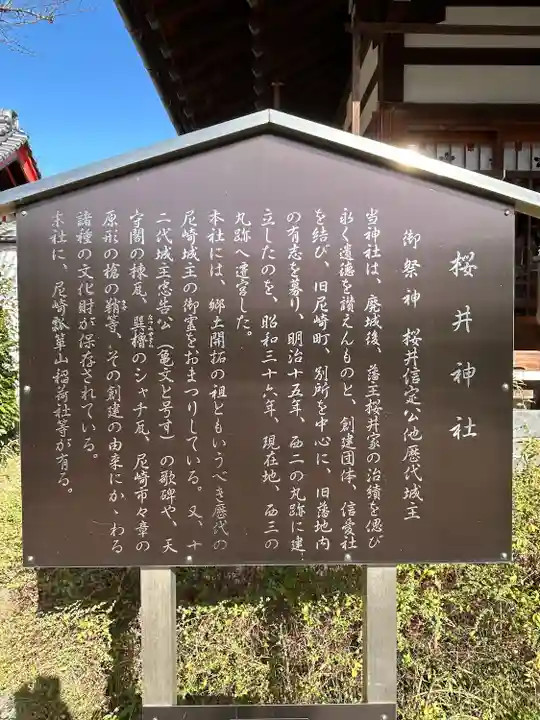 桜井神社
御祭神 桜井信定公他歴代城主
当神社は、廃城後、藩主桜井家の治績を偲び
永く遺徳を讃えんものと、創建団体、信愛社
を結び、旧尼崎町、別所を中心に、旧藩地内
の有志を募り、明治十五年、西二の丸跡に建
立したのを、昭和三十六年、現在地、西三の
丸跡へ遷宮した。
本社には、郷土開拓の祖ともいうべき歴代の
尼崎城主の御霊をおまつりしている。又、十
二代城主忠告公(亀文と号す)の歌碑や、天
守閣の棟瓦、巽櫓のシャチ瓦、尼崎市々章の
原形の槍の鞘等、その創建の由来にかゝわる
諸種の文化財が保存されている。
末社に、尼崎瓢箪山稲荷社等が有る。